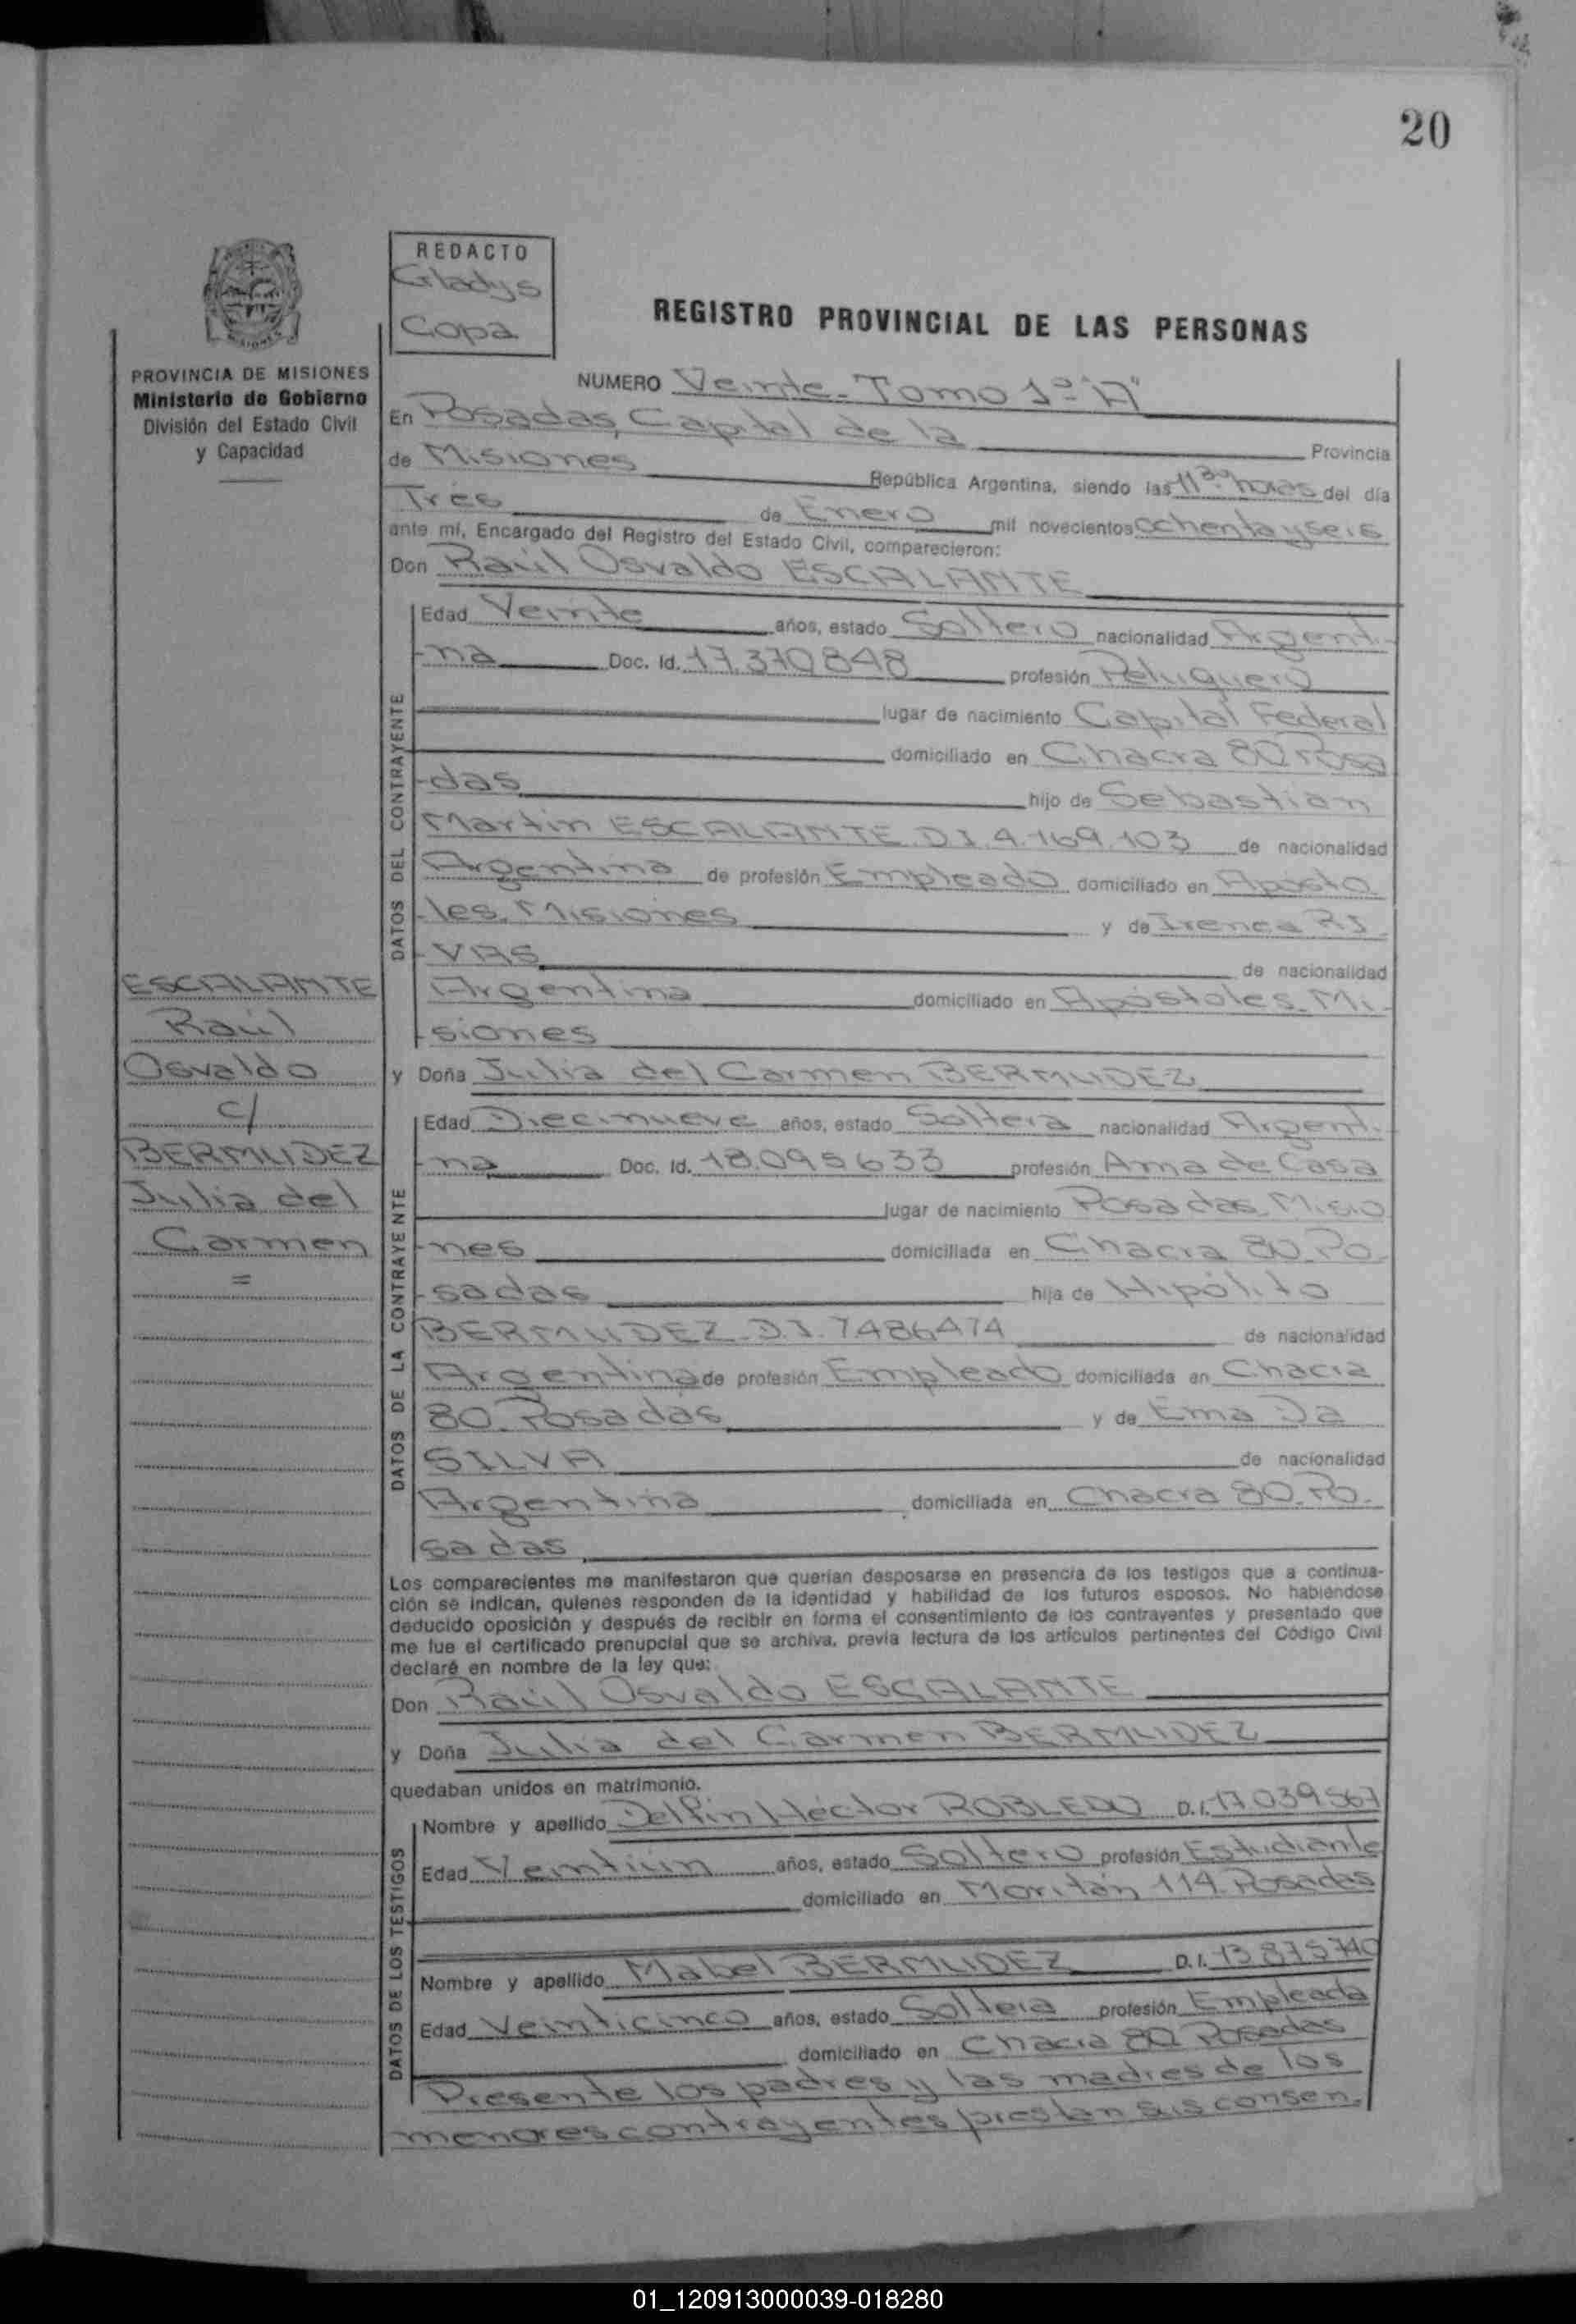 20
REDACTO
Gladys
Copa
REGISTRO PROVINCIAL DE LAS PERSONAS
PROVINCIA DE MISIONES
Ministerio de Gobierno
División del Estado Civil
y Capacidad
NUMERO Veinte - Tomo 1º "A"
En Posadas, Capital de la Provincia
de Misiones República Argentina, siendo las 11³⁰ horas del día
Tres de Enero mil novecientos ochenta y seis
ante mí, Encargado del Registro del Estado Civil, comparecieron:
Don Raúl Osvaldo ESCALANTE
DATOS DEL CONTRAYENTE
Edad Veinte años, estado Soltero nacionalidad Argenti-
-na Doc. Id. 17.370848 profesión Peluquero
lugar de nacimiento Capital Federal
domiciliado en Chacra 80 Posa
-das hijo de Sebastian
Martin ESCALANTE. D I. 4.169.103 de nacionalidad
Argentina de profesión Empleado domiciliado en Aposto
-les. Misiones y de Irenea RI-
-VAS de nacionalidad
Argentina domiciliado en Apóstoles. Mi-
-siones
y Doña Julia del Carmen BERMUDEZ
ESCALANTE
Raúl
Osvaldo
c/
BERMUDEZ
Julia del
Carmen
=
DATOS DE LA CONTRAYENTE
Edad Diecinueve años, estado Soltera nacionalidad Argenti-
-na Doc. Id. 18.095633 profesión Ama de Casa
lugar de nacimiento Posadas. Misio
-nes domiciliada en Chacra 80. Po-
-sadas hija de Hipólito
BERMUDEZ. D.I. 7486474 de nacionalidad
Argentina de profesión Empleado domiciliada en Chacra
80. Posadas y de Ema Da
SILVA de nacionalidad
Argentina domiciliada en Chacra 80. Po-
sadas
Los comparecientes me manifestaron que querían desposarse en presencia de los testigos que a continua-
ción se indican, quienes responden de la identidad y habilidad de los futuros esposos. No habiéndose
deducido oposición y después de recibir en forma el consentimiento de los contrayentes y presentado que
me fue el certificado prenupcial que se archiva, previa lectura de los artículos pertinentes del Código Civil
declaré en nombre de la ley que:
Don Raúl Osvaldo ESCALANTE
y Doña Julia del Carmen BERMUDEZ
quedaban unidos en matrimonio.
DATOS DE LOS TESTIGOS
Nombre y apellido Delfin Héctor ROBLEDO D.I. 17.039.567
Edad Veintiún años, estado Soltero profesión Estudiante
domiciliado en Moritán 114. Posadas
Nombre y apellido Mabel BERMUDEZ D.I. 13 875740
Edad Veinticinco años, estado Soltera profesión Empleada
domiciliado en Chacra 80. Posadas
Presente los padres y las madres de los
menores contrayentes prestan sus consen.
01_120913000039-018280